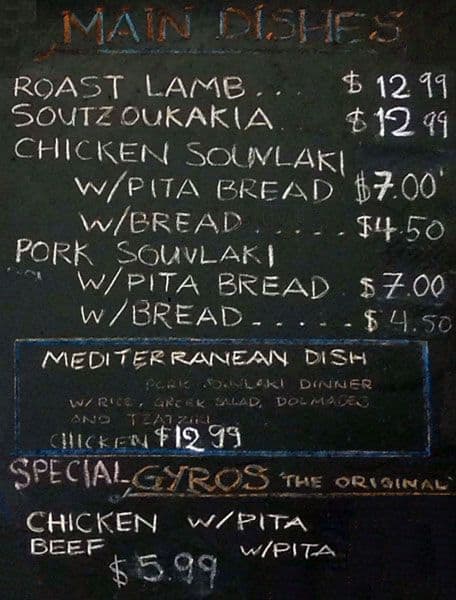 MAIN DISHES
ROAST LAMB... $ 12 99
SOUTZOUKAKIA $12 99
CHICKEN SOUVLAKI
W/PITA BREAD $7.00
W/BREAD..... $4.50
PORK SOUVLAKI
W/PITA BREAD $7.00
W/BREAD..... $4.50
MEDITERRANEAN DISH
PORK SOUVLAKI DINNER
W/RICE, GREEK SALAD, DOLMADES
AND TZATZIKI
CHICKEN $12 99
SPECIAL GYROS "THE ORIGINAL"
CHICKEN W/PITA
BEEF W/PITA
$5.99